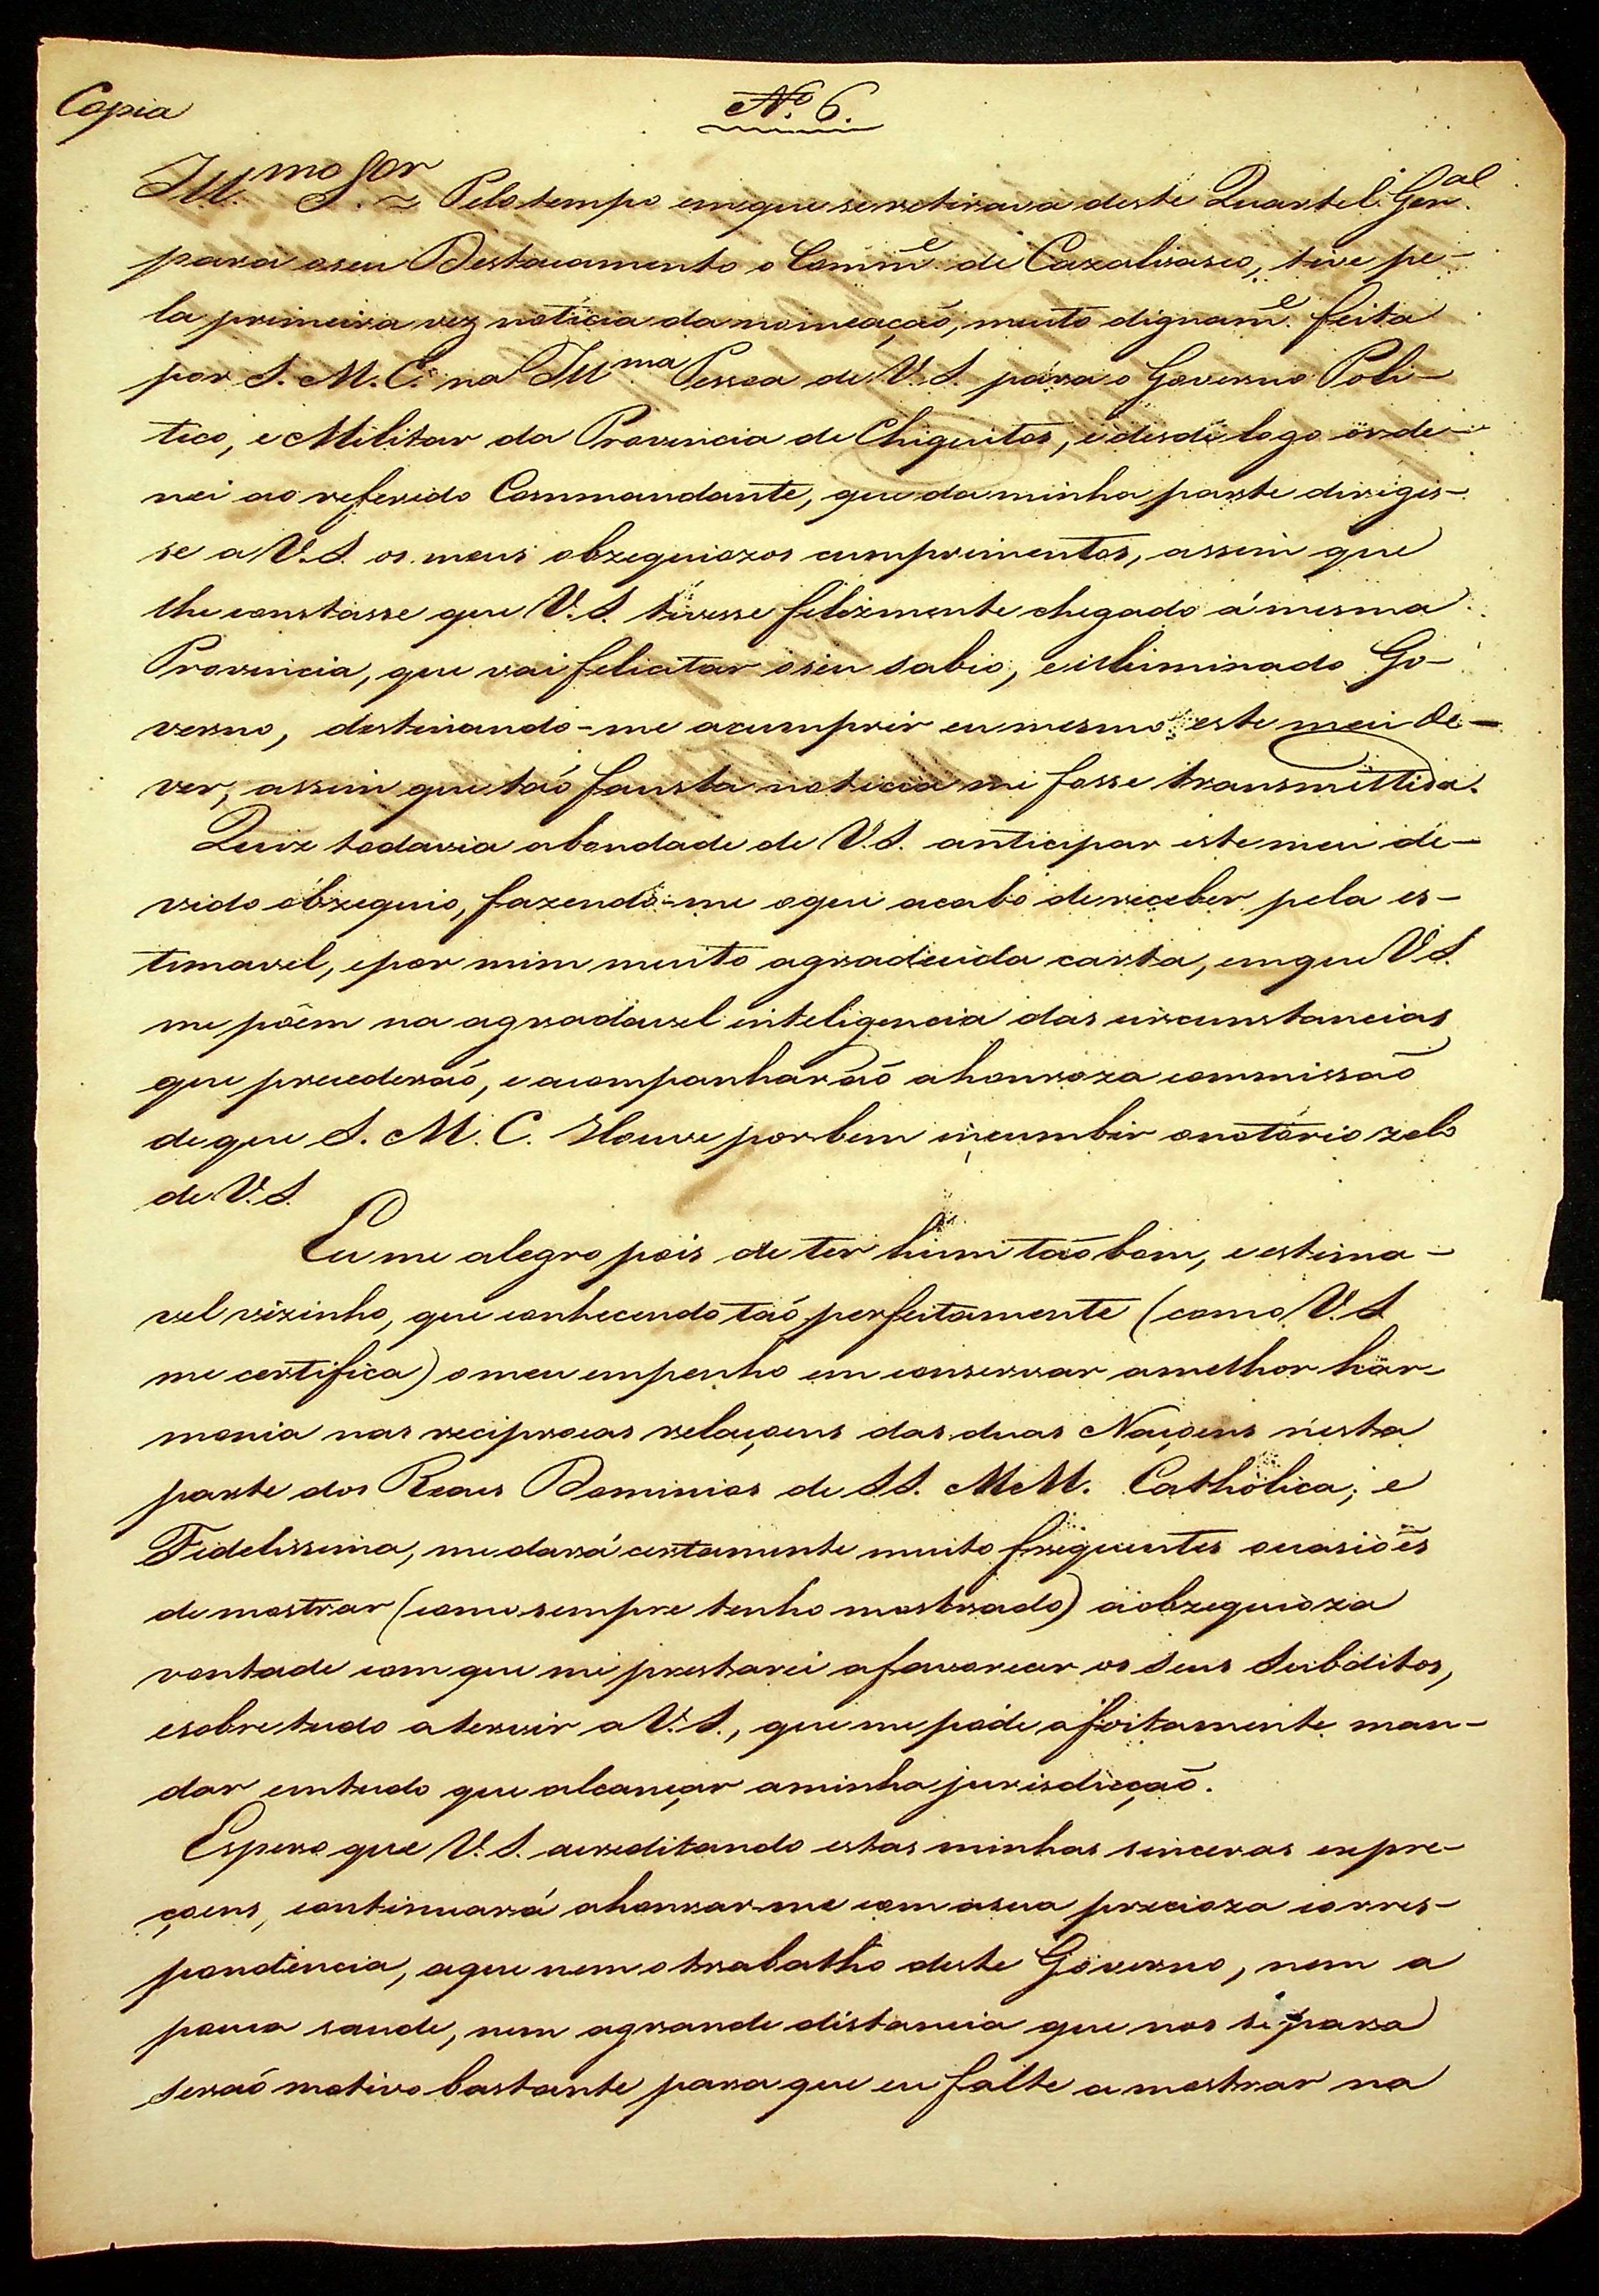 Copia
Nº 6.
Illmo Sor ~ Pelo tempo em que se retirava deste Quartel Genal
para o seu Destacamento o Comme de Cazalvasco, tive pe-
la primeira vez noticia da nomeação, muito dignamᵉ. feita
por S. M. C. na Illma Pessoa de V. S. para o Governo Poli-
tico, e Militar da Provincia de Chiquitos, e desde logo orde-
nei ao referido Commandante, que da minha parte dirigis-
se a V. S. os meus obzequiozos cumprimentos, assim que
lhe constasse que V. S. tivesse felizmente chegado á mesma
Provincia, que vai felicitar o seu sabio, e illuminado Go-
verno, destinando-me a cumprir eu mesmo este meu de-
ver, assim que taó fausta noticia me fosse transmittida.
Quiz todavia a bondade de V. S. anticipar este meu de-
vido obzequio, fazendo-me o que acabo de receber pela es-
timavel, e por mim muito agradecida carta, em que V. S.
me põem na agradavel inteligencia das circunstancias
que precederaó, e acompanharaó a honroza commissaõ
de que S. M. C. Houve por bem incumbir o notorio zelo
de V. S.
Eu me alegro pois de ter hum taõ bom, e estima-
vel vizinho, que conhecendo taó perfeitamente (como V. S.
me certifica) o meu empenho em conservar a melhor har-
monia nas reciprocas relaçoens das duas Naçoens nesta
parte dos Reaes Dominios de SS. MM. Catholica, e
Fidelissima, me dará certamente muito frequentes occasiões
de mostrar (como sempre tenho mostrado) a obzequioza
vontade com que me prestarei a favorecer os seus Subditos,
e sobretudo a servir a V. S., que me póde afoitamente man-
dar em tudo que alcançar a minha jurisdicçaõ.
Espero que V. S. acreditando estas minhas sinceras expre-
çoens, continuará a honrar-me com a sua precioza corres-
pondencia, a que nem o trabalho deste Governo, nem a
pouca saude, nem a grande distancia que nos separa
seraó motivo bastante para que eu falte a mostrar na